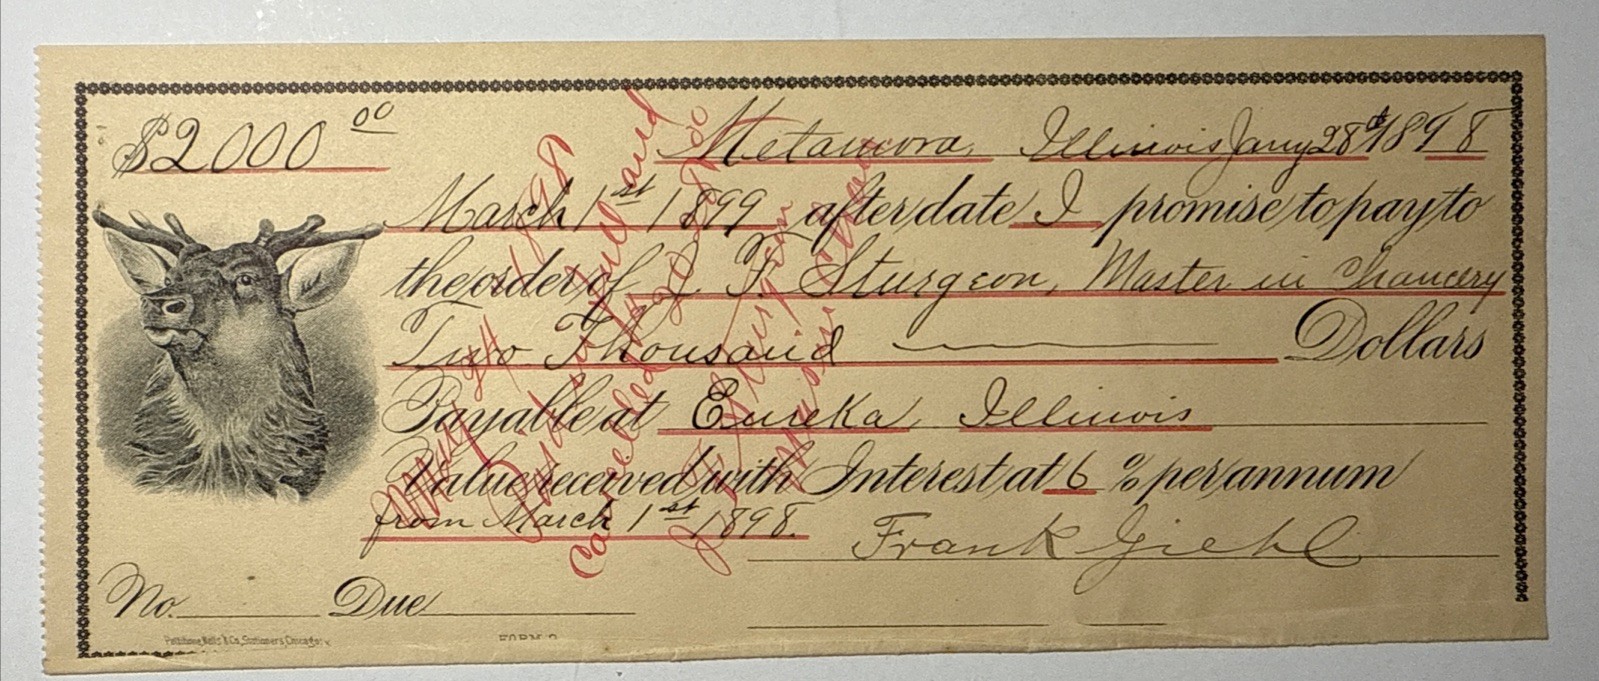 $2000 00 Metamora, Illinois Jany 28th 1898
March 1st 1899 after date I promise to pay to
the order of J. F. Sturgeon, Master in Chancery
Two Thousand Dollars
Payable at Eureka, Illinois
Value received with Interest at 6 % per annum
from March 1st 1898.
Frank Giehl
No. Due
Pettibone, Wells & Co., Stationers, Chicago.
FORM 2
Paid in full and
Cancelled
J F Sturgeon
Master in Chan